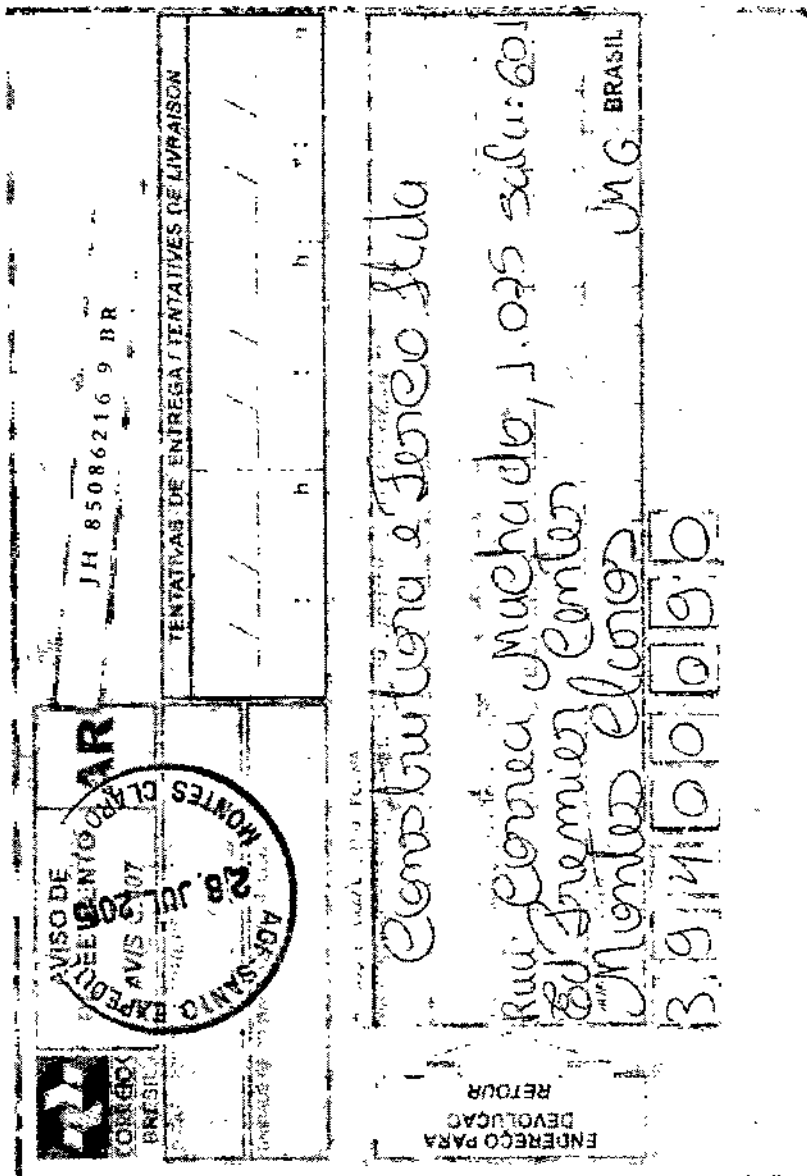 CORREIOS
BRÉSIL
AVISO DE
AVIS CN07
AR
AGF SANTO EXPEDITO
28 JUL
MONTES CLAROS
JH 85086216 9 BR
TENTATIVAS DE ENTREGA / TENTATIVES DE LIVRAISON
/ / / / / /
: h : h : h
ENDEREÇO PARA
DEVOLUÇÃO
RETOUR
Construtora e Ltda
Rua Correa Machado, 1.025 sala: 601
Ed Premier Center
Montes Claros MG BRASIL
3 9 4 0 0 0 9 0